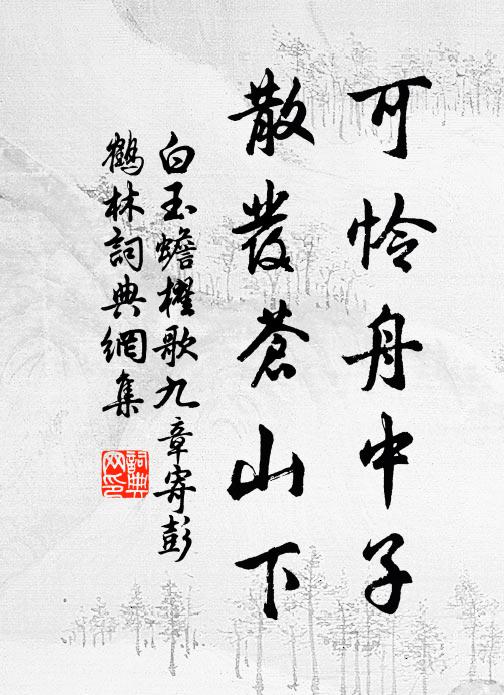 可怜舟中子
散發蒼山下
白玉蟾櫂歌九章寄彭
鶴林詞典網集
詞典网印